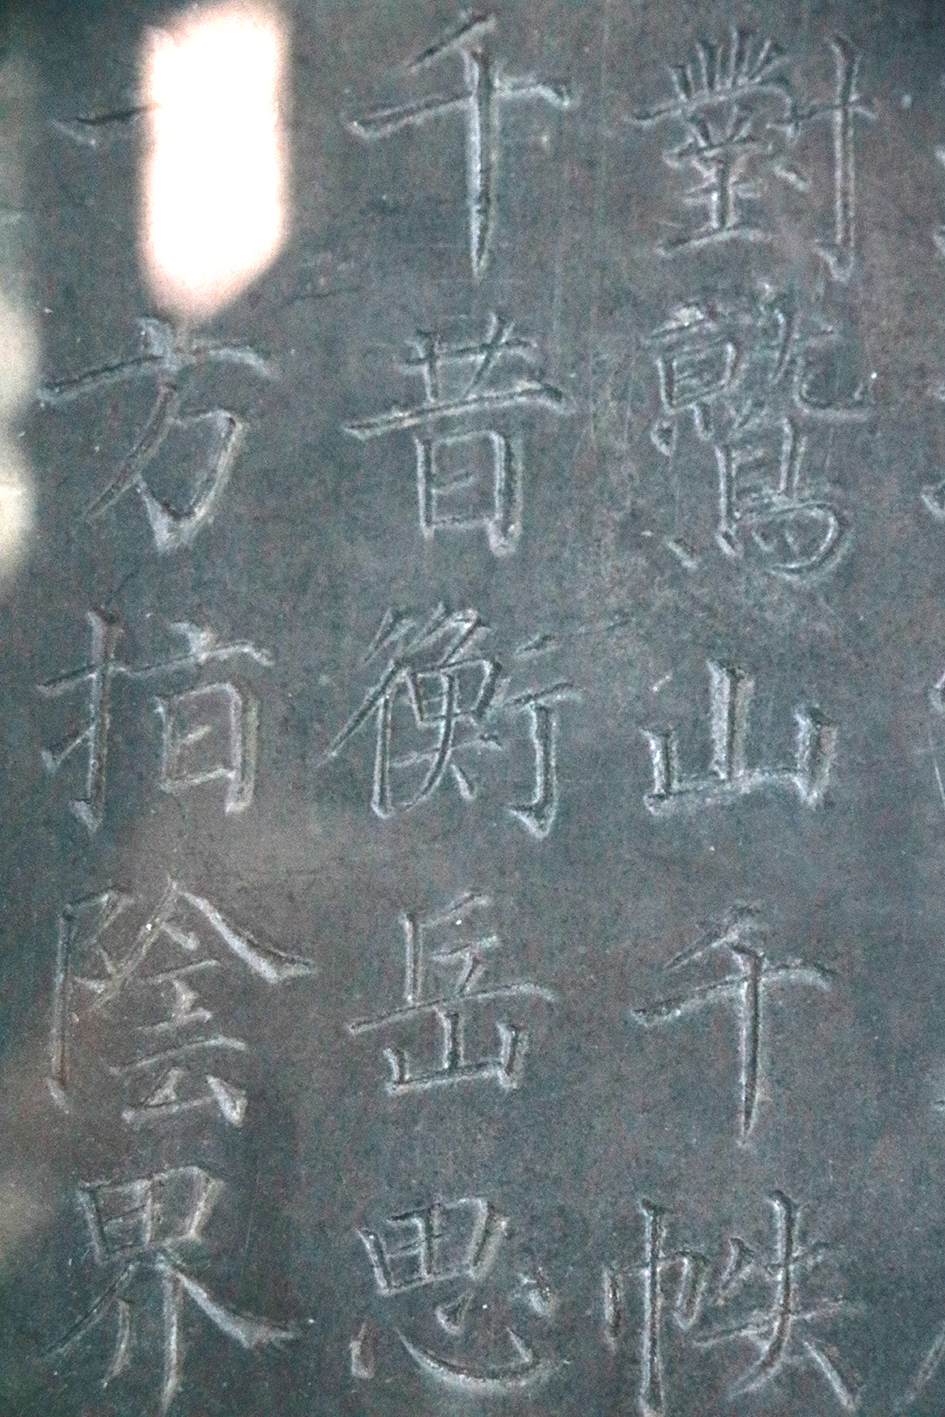 對鷲山千帙
千昔衡岳思
方指陰界